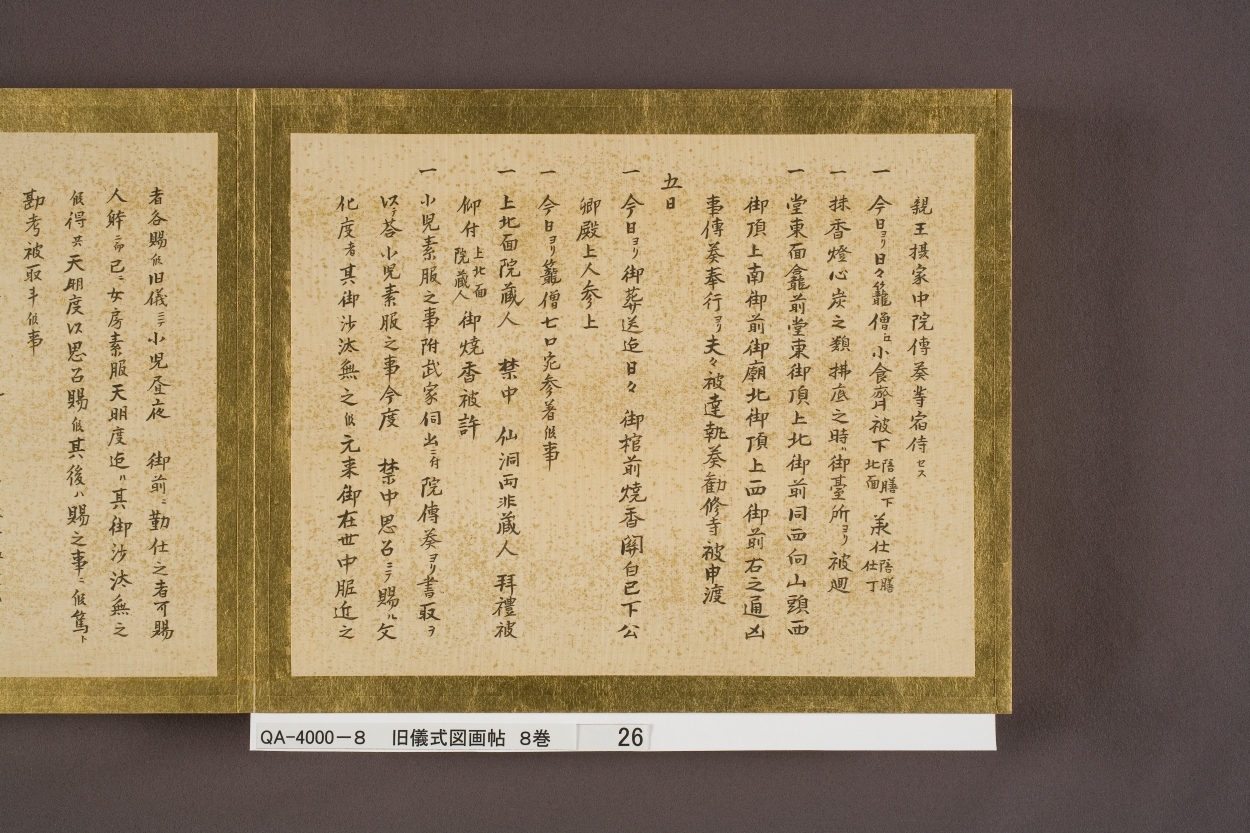 親王摂家中院傳奏等宿侍セス
一今日ヨリ日々籠僧江小食齊被下陪膳下北面羕仕陪膳仕丁
一抹香燈心炭之類拂底之時ハ御臺所ヨリ被廻
一堂東面龕前堂東御頂上北御前同西向山頭西
御頂上南御前御廟北御頂上西御前右之通凶
事傳奏奉行ヨリ夫々被達執奏勧修寺被申渡
五日
一今日ヨリ御葬送迄日々御棺前焼香関白已下公
卿殿上人参上
一今日ヨリ籠僧七口宛参著候事
一上北面院蔵人 禁中 仙洞両非蔵人 拜禮被
仰付上北面院蔵人御焼香被許
一小児素服之事附武家伺出ニ付院傳奏ヨリ書取ヲ
以テ荅小児素服之事今度 禁中思召ニテ賜ハル文
化度者其御沙汰無之候元来御在世中眤近之
者各賜候旧儀ニテ小児昼夜 御前ニ勤仕之者可賜
人躰ニ而已ニ女房素服天明度迄ハ其御沙汰無之
候得共天明度以思召賜候其後ハ賜之事ニ候篤ト
勘考被取斗候事
QA-4000-8 旧儀式図画帖 8巻 26